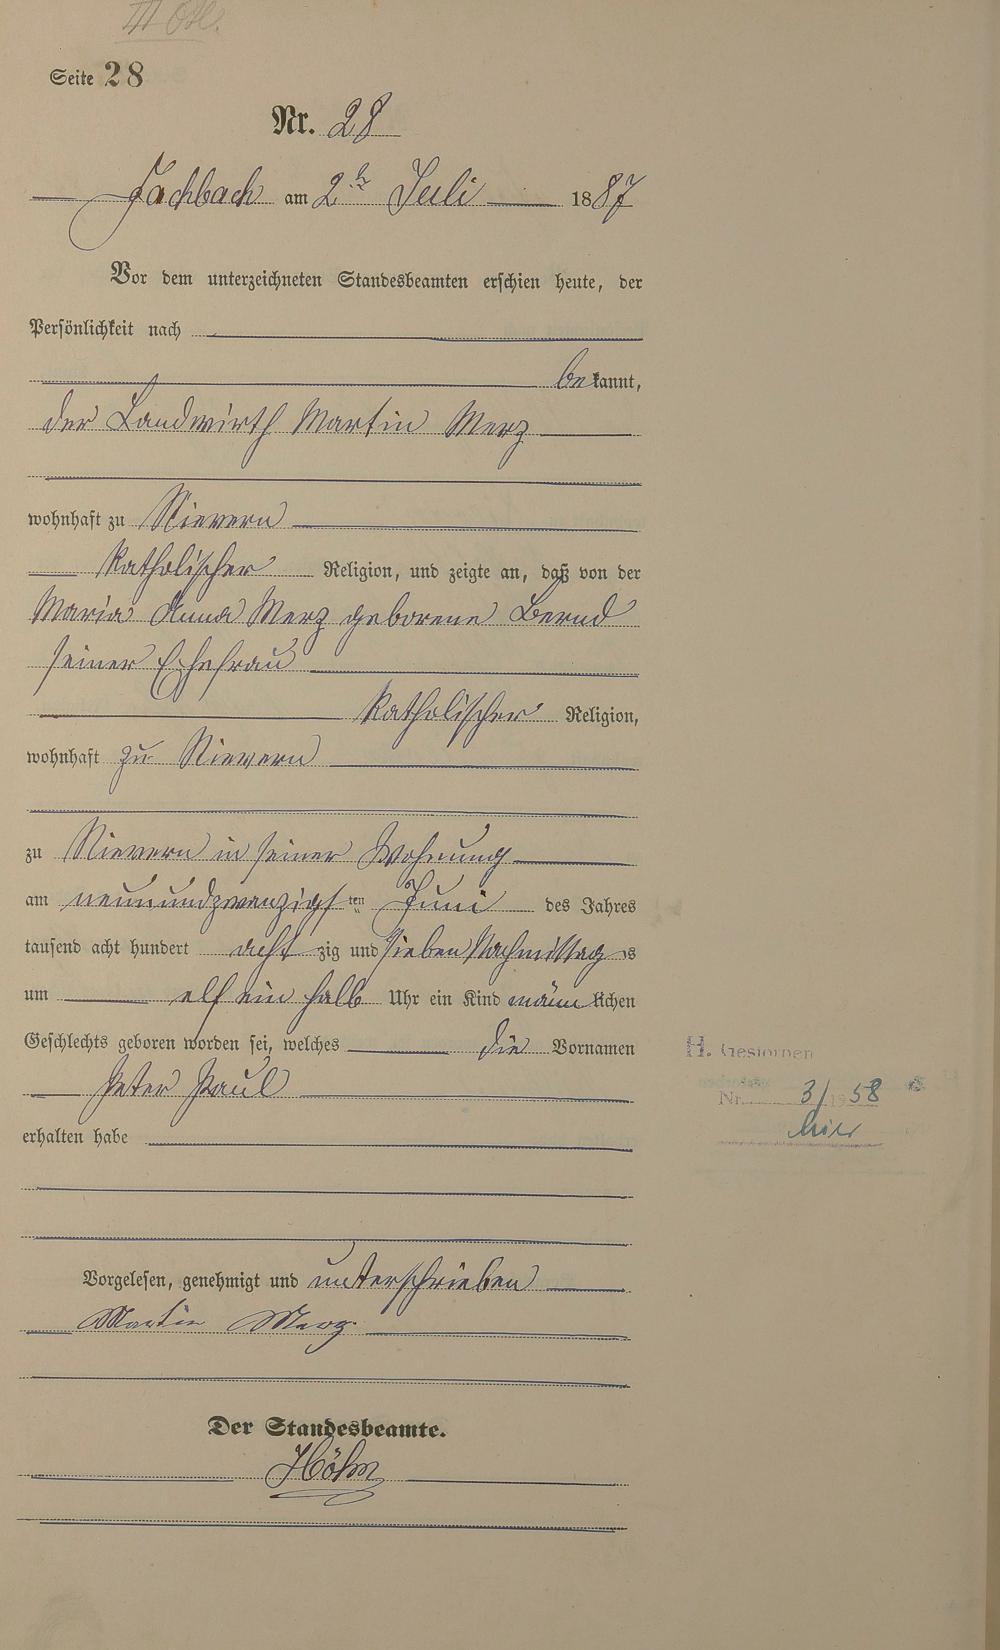 Seite 28
Nr. 28
Fachbach am 2. Juli 1887
Vor dem unterzeichneten Standesbeamten erschien heute, der
Persönlichkeit nach
bekannt,
der Landwirth Martin Merz
wohnhaft zu Nievern
katholischer Religion, und zeigte an, daß von der
Maria Anna Merz geborene Bernd
seiner Ehefrau
katholischer Religion,
wohnhaft zu Nievern
zu Nievern in seiner Wohnung
am neunundzwanzigsten Juni des Jahres
tausend acht hundert achtzig und sieben Nachmittags
um elf ein halb Uhr ein Kind männlichen
Geschlechts geboren worden sei, welches die Vornamen
Peter Paul
erhalten habe
H. Gestorben
Nr. 3/1958
hier
Vorgelesen, genehmigt und unterschrieben
Martin Merz
Der Standesbeamte.
Höhn